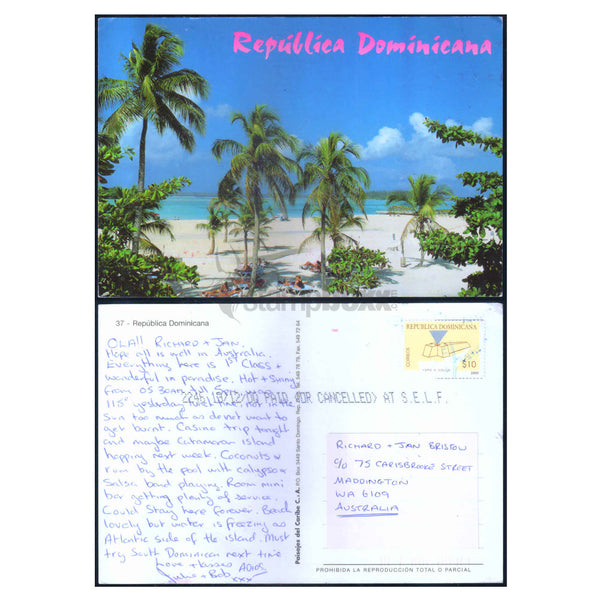 República Dominicana
37 - República Dominicana
OLA!! RICHARD + JAN.
Hope all is well in Australia.
Everything here is 1st CLASS +
wonderful in paradise. Hot + Sunny
from 05 30am till 5pm.
115° yesterday but not in the
Sun too much as do not want to
get burnt. Casino trip tonight
and maybe Catamaran island
hopping next week. Coconuts +
rum by the pool with calypso +
Salsa band playing. Room mini
bar getting plenty of service.
Could stay here forever. Beach
lovely but water is freezing as
Atlantic side of the island. Must
try South Dominican next time
Love + kisses Adios
Julie + Bob
xxx
Paisajes del Caribe C. A. P.O. Box 3449 Santo Domingo Fax. 549 72 64
REPUBLICA DOMINICANA
CORREOS
$10
2246 18/12/00 PAID (OR CANCELLED) AT S.E.L.F.
RICHARD + JAN BRISTOW
C/O 75 CARISBROOKE STREET
MADDINGTON
WA 6109
AUSTRALIA
PROHIBIDA LA REPRODUCCIÓN TOTAL O PARCIAL
stampboxx